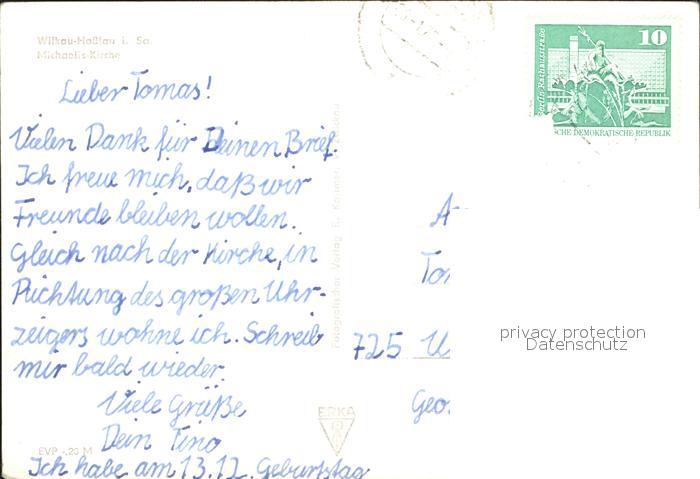 Wilkau-Haßlau i. Sa.
Michaelis-Kirche
Lieber Tomas!
Vielen Dank für Deinen Brief.
Ich freue mich, daß wir
Freunde bleiben wollen.
Gleich nach der Kirche, in
Richtung des großen Uhr-
zeigers wohne ich. Schreib
mir bald wieder.
Viele Grüße
Dein Tino
EVP -,20 M
Ich habe am 13.12. Geburtstag
Fotografischer Verlag R.
ERKA
10
Berlin Rathausstraße
SCHE DEMOKRATISCHE REPUBLIK
A
To
725 U
Geo.
privacy protection
Datenschutz